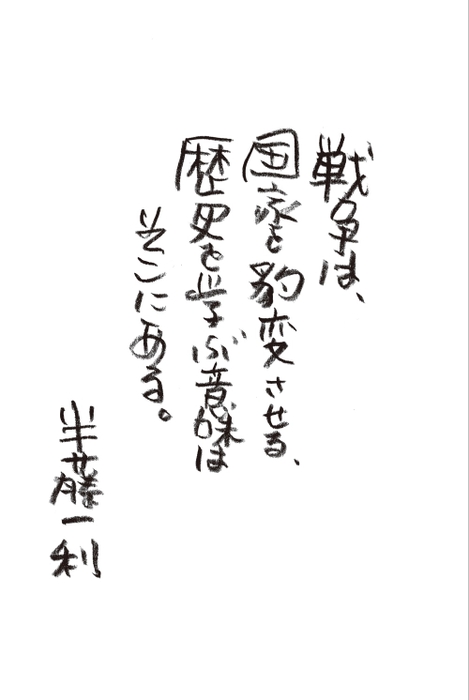 戦争は、
国家を豹変させる、
歴史を学ぶ意味は
そこにある。
半藤一利